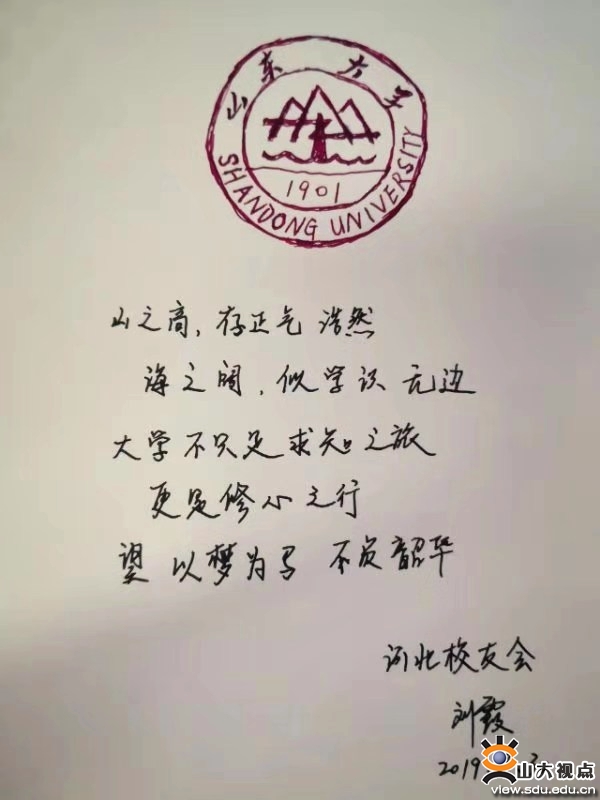 山东大学
1901
SHANDONG UNIVERSITY
山之高，存正气 浩然
海之阔，似学识 无边
大学不只是求知之旅
更是修心之行
望 以梦为马 不负韶华
河北校友会
刘霞
2019
山大视点
view.sdu.edu.cn